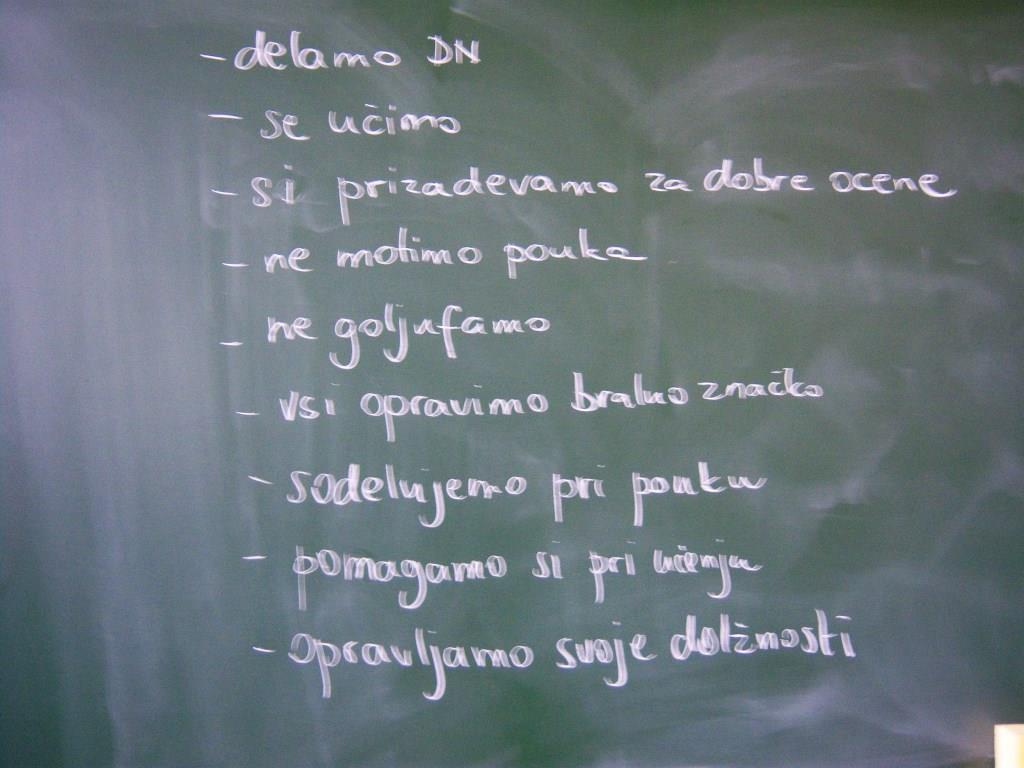 - delamo DN
- se učimo
- si prizadevamo za dobre ocene
- ne motimo pouka
- ne goljufamo
- vsi opravimo bralno značko
- sodelujemo pri pouku
- pomagamo si pri učenju
- opravljamo svoje dolžnosti